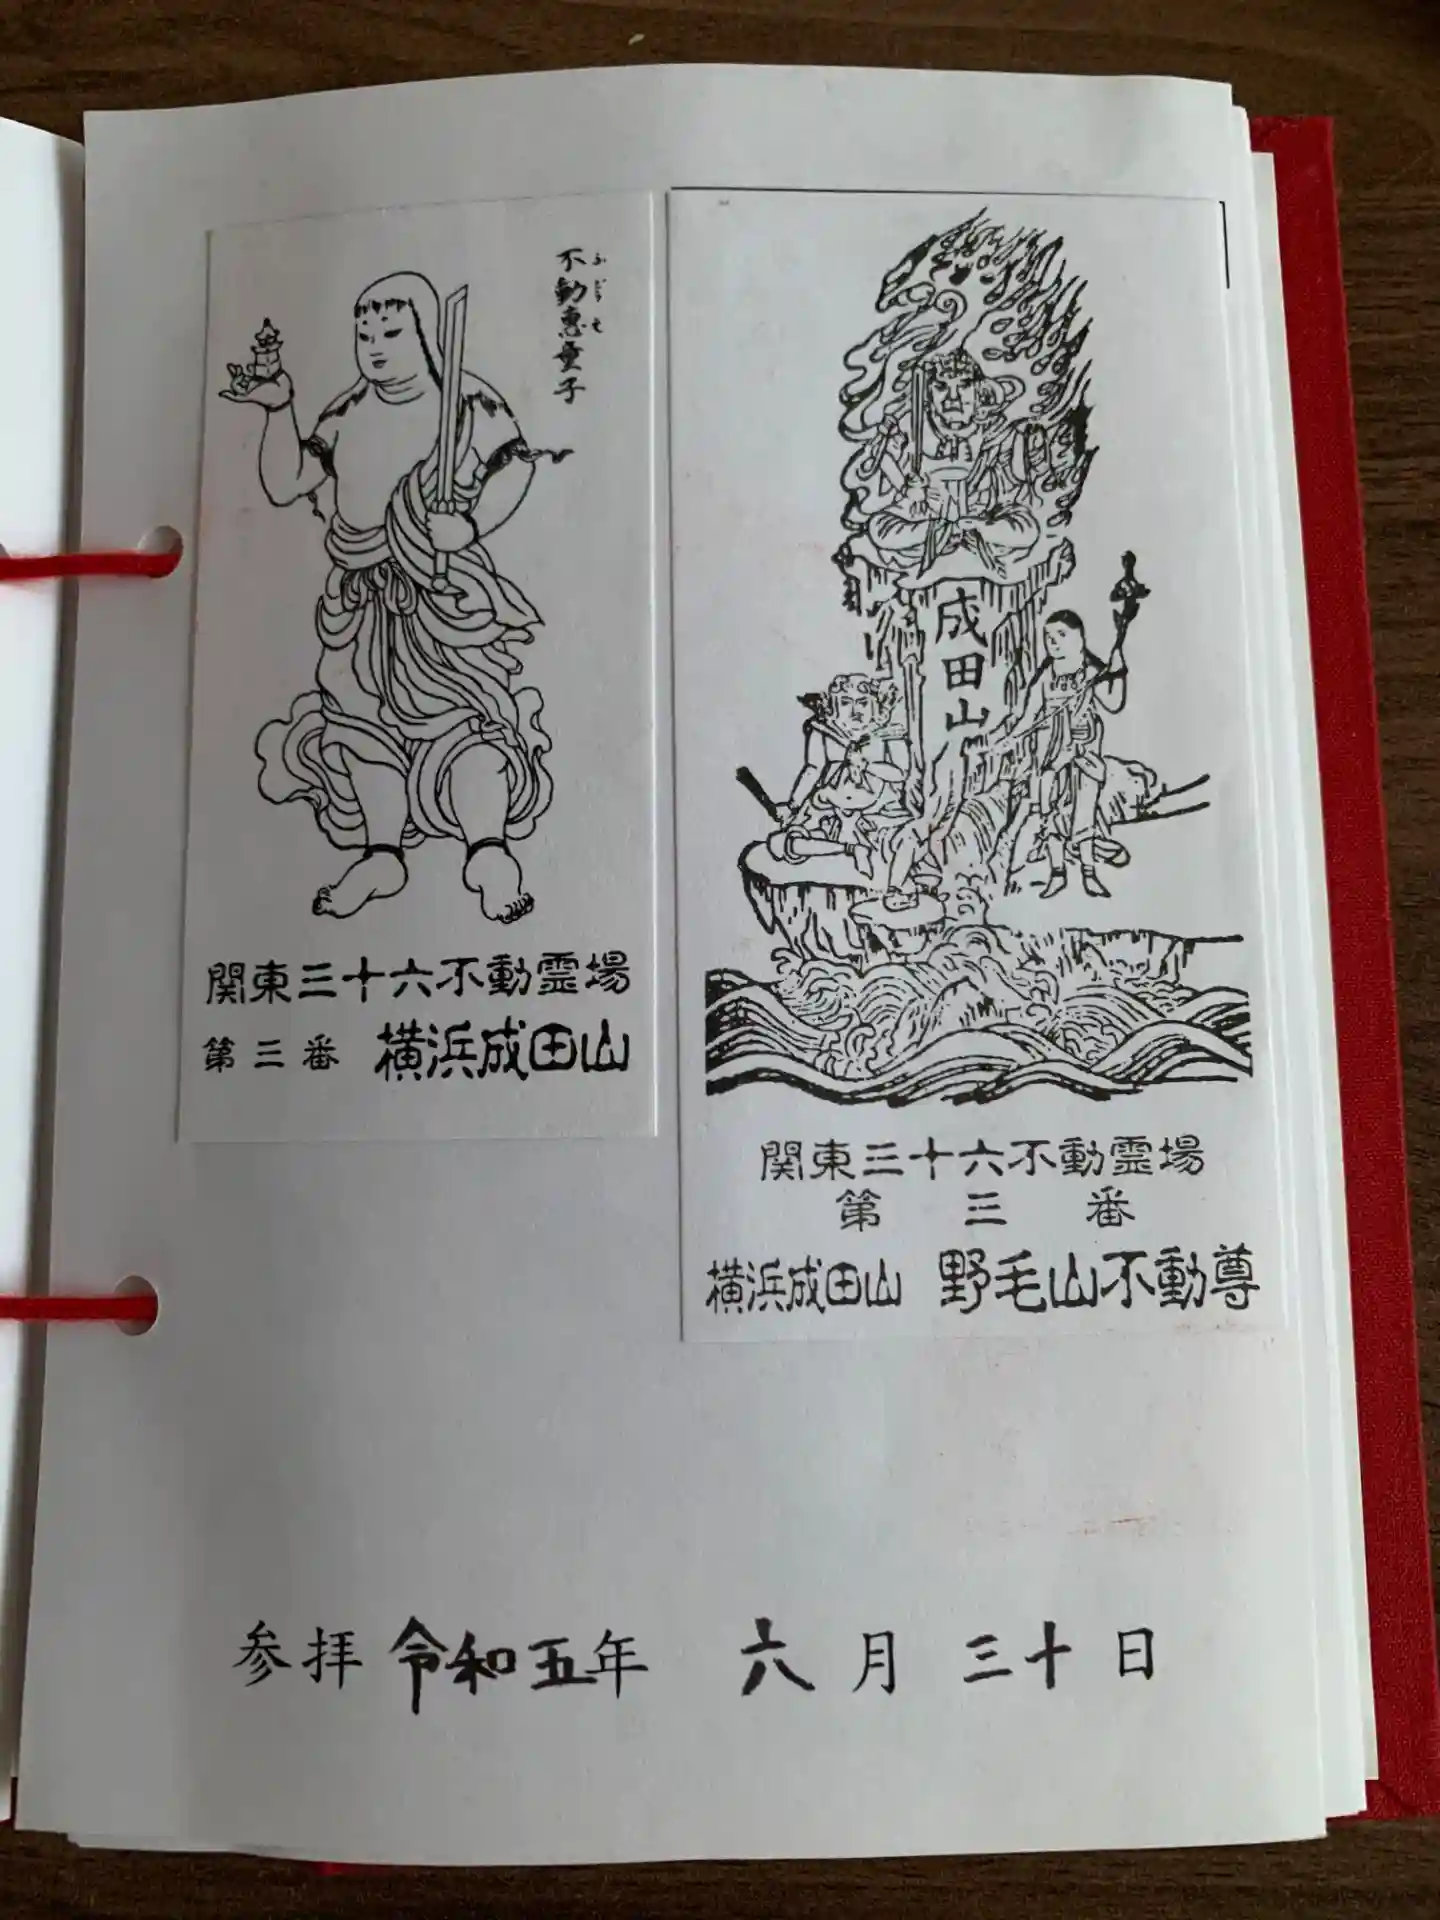 不動恵童子
ふどうえ
関東三十六不動霊場
第三番 横浜成田山
成田山
関東三十六不動霊場
第三番
横浜成田山 野毛山不動尊
参拝 令和五年 六月 三十日